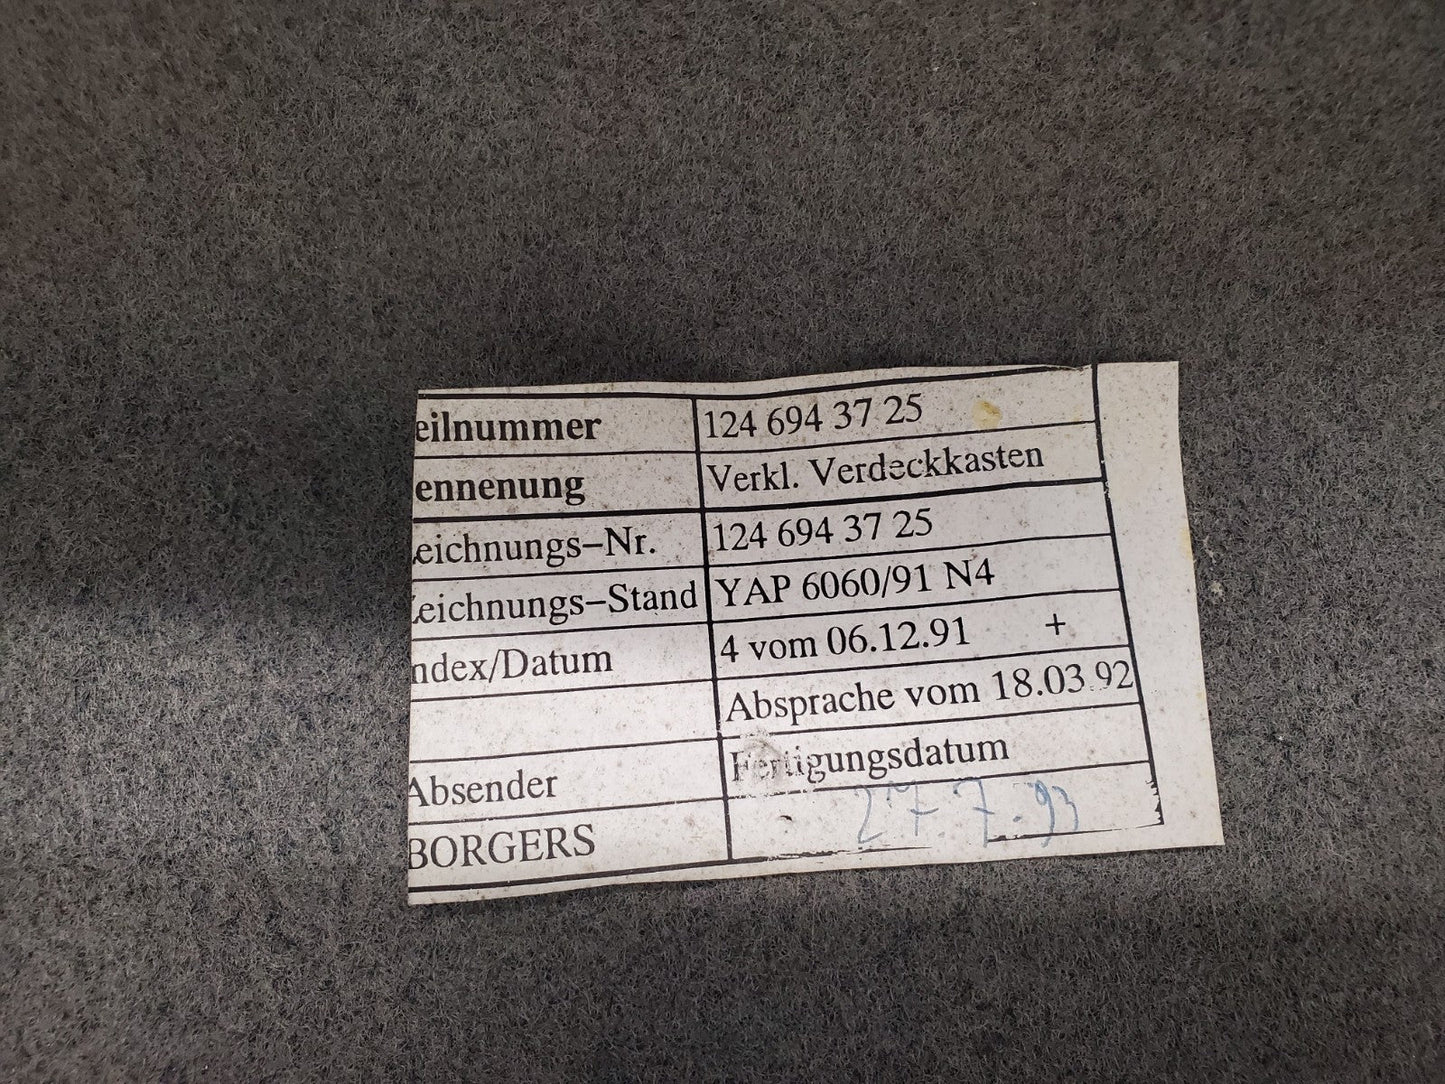 eilnummer 124 694 37 25
ennenung Verkl. Verdeckkasten
eichnungs–Nr. 124 694 37 25
eichnungs–Stand YAP 6060/91 N4
ndex/Datum 4 vom 06.12.91 +
Absprache vom 18.03.92
Absender Fertigungsdatum
BORGERS 27.7.93